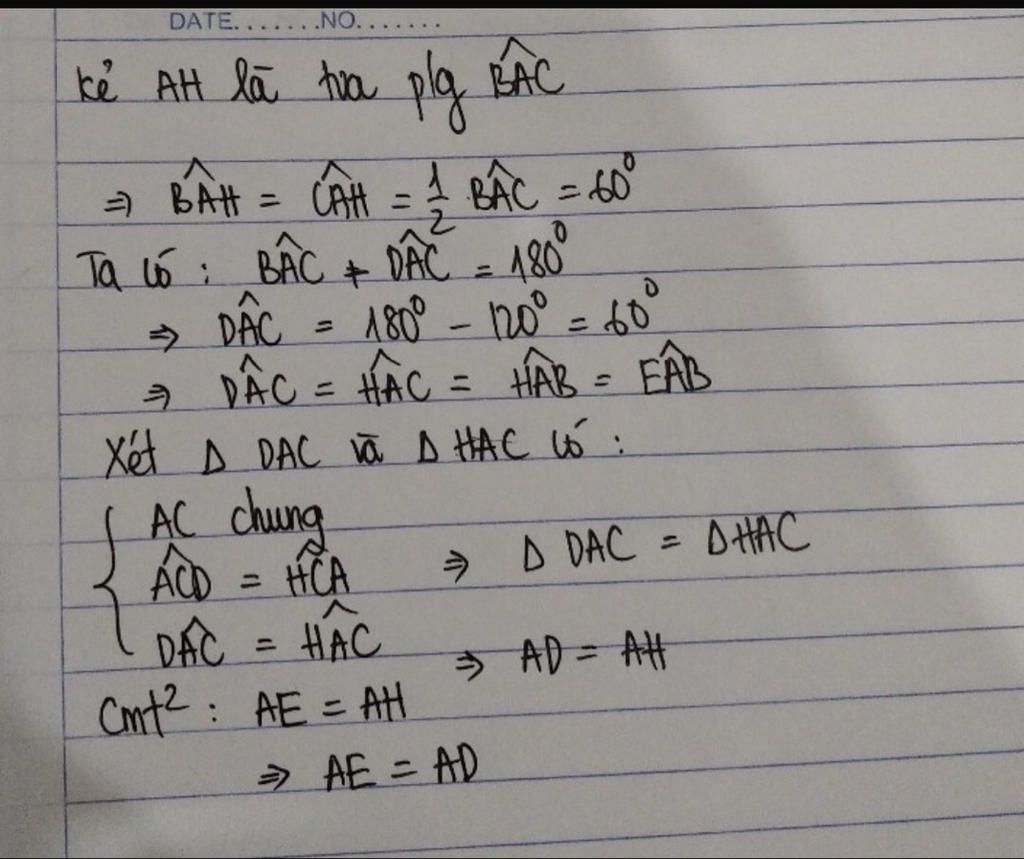 DATE.......NO.......
kẻ AH là tia p/g BÂC
⇒ BÂH = CÂH = 1/2 BÂC = 60⁰
Ta có : BÂC + DÂC = 180⁰
⇒ DÂC = 180⁰ - 120⁰ = 60⁰
⇒ DÂC = HÂC = HÂB = EÂB
Xét Δ DAC và Δ HAC có :
{ AC chung
AĈD = HĈA ⇒ Δ DAC = ΔHAC
DÂC = HÂC ⇒ AD = AH
Cmt² : AE = AH
⇒ AE = AD